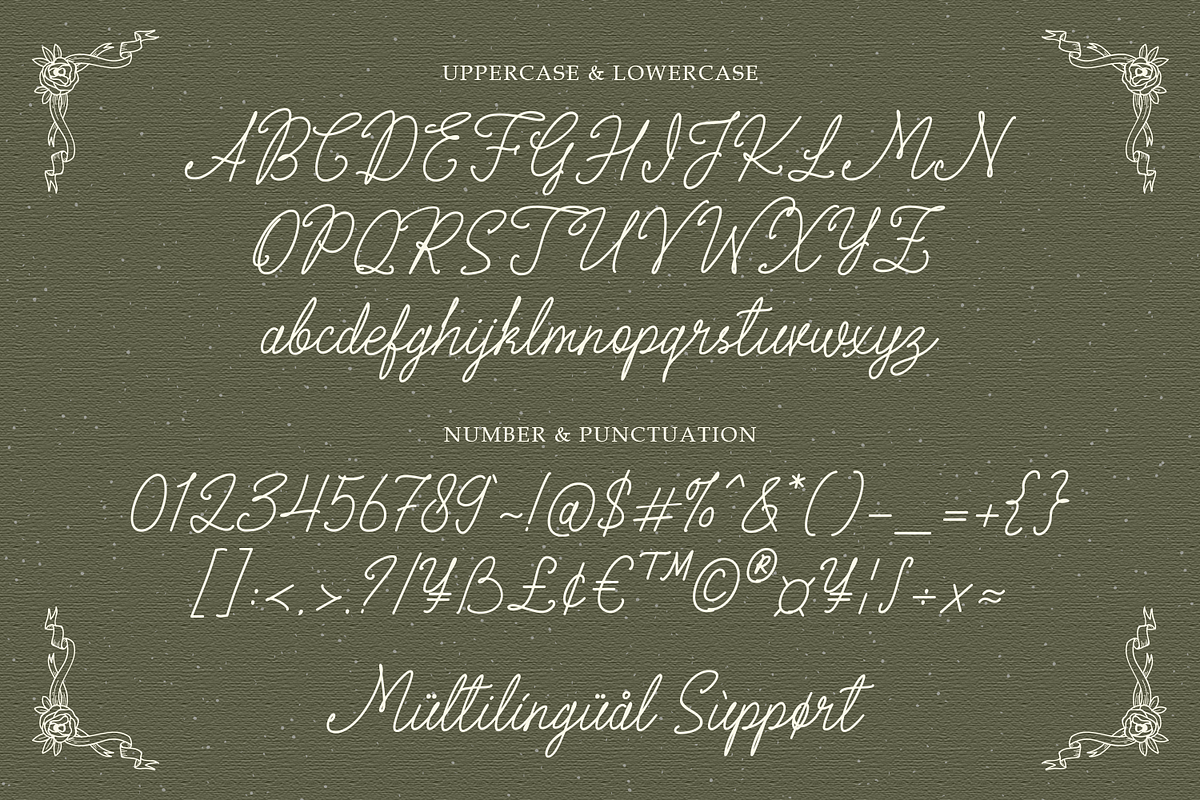 UPPERCASE & LOWERCASE
ABCDEFGHIJKLMN
OPQRSTUVWXYZ
abcdefghijklmnopqrstuvwxyz
NUMBER & PUNCTUATION
0123456789`~!@$#%^&*()-_=+{}
[]:<,>.?/¥ß£¢€™©®¤¥¦∫÷×≈
Mültilíngüål Sùppørt